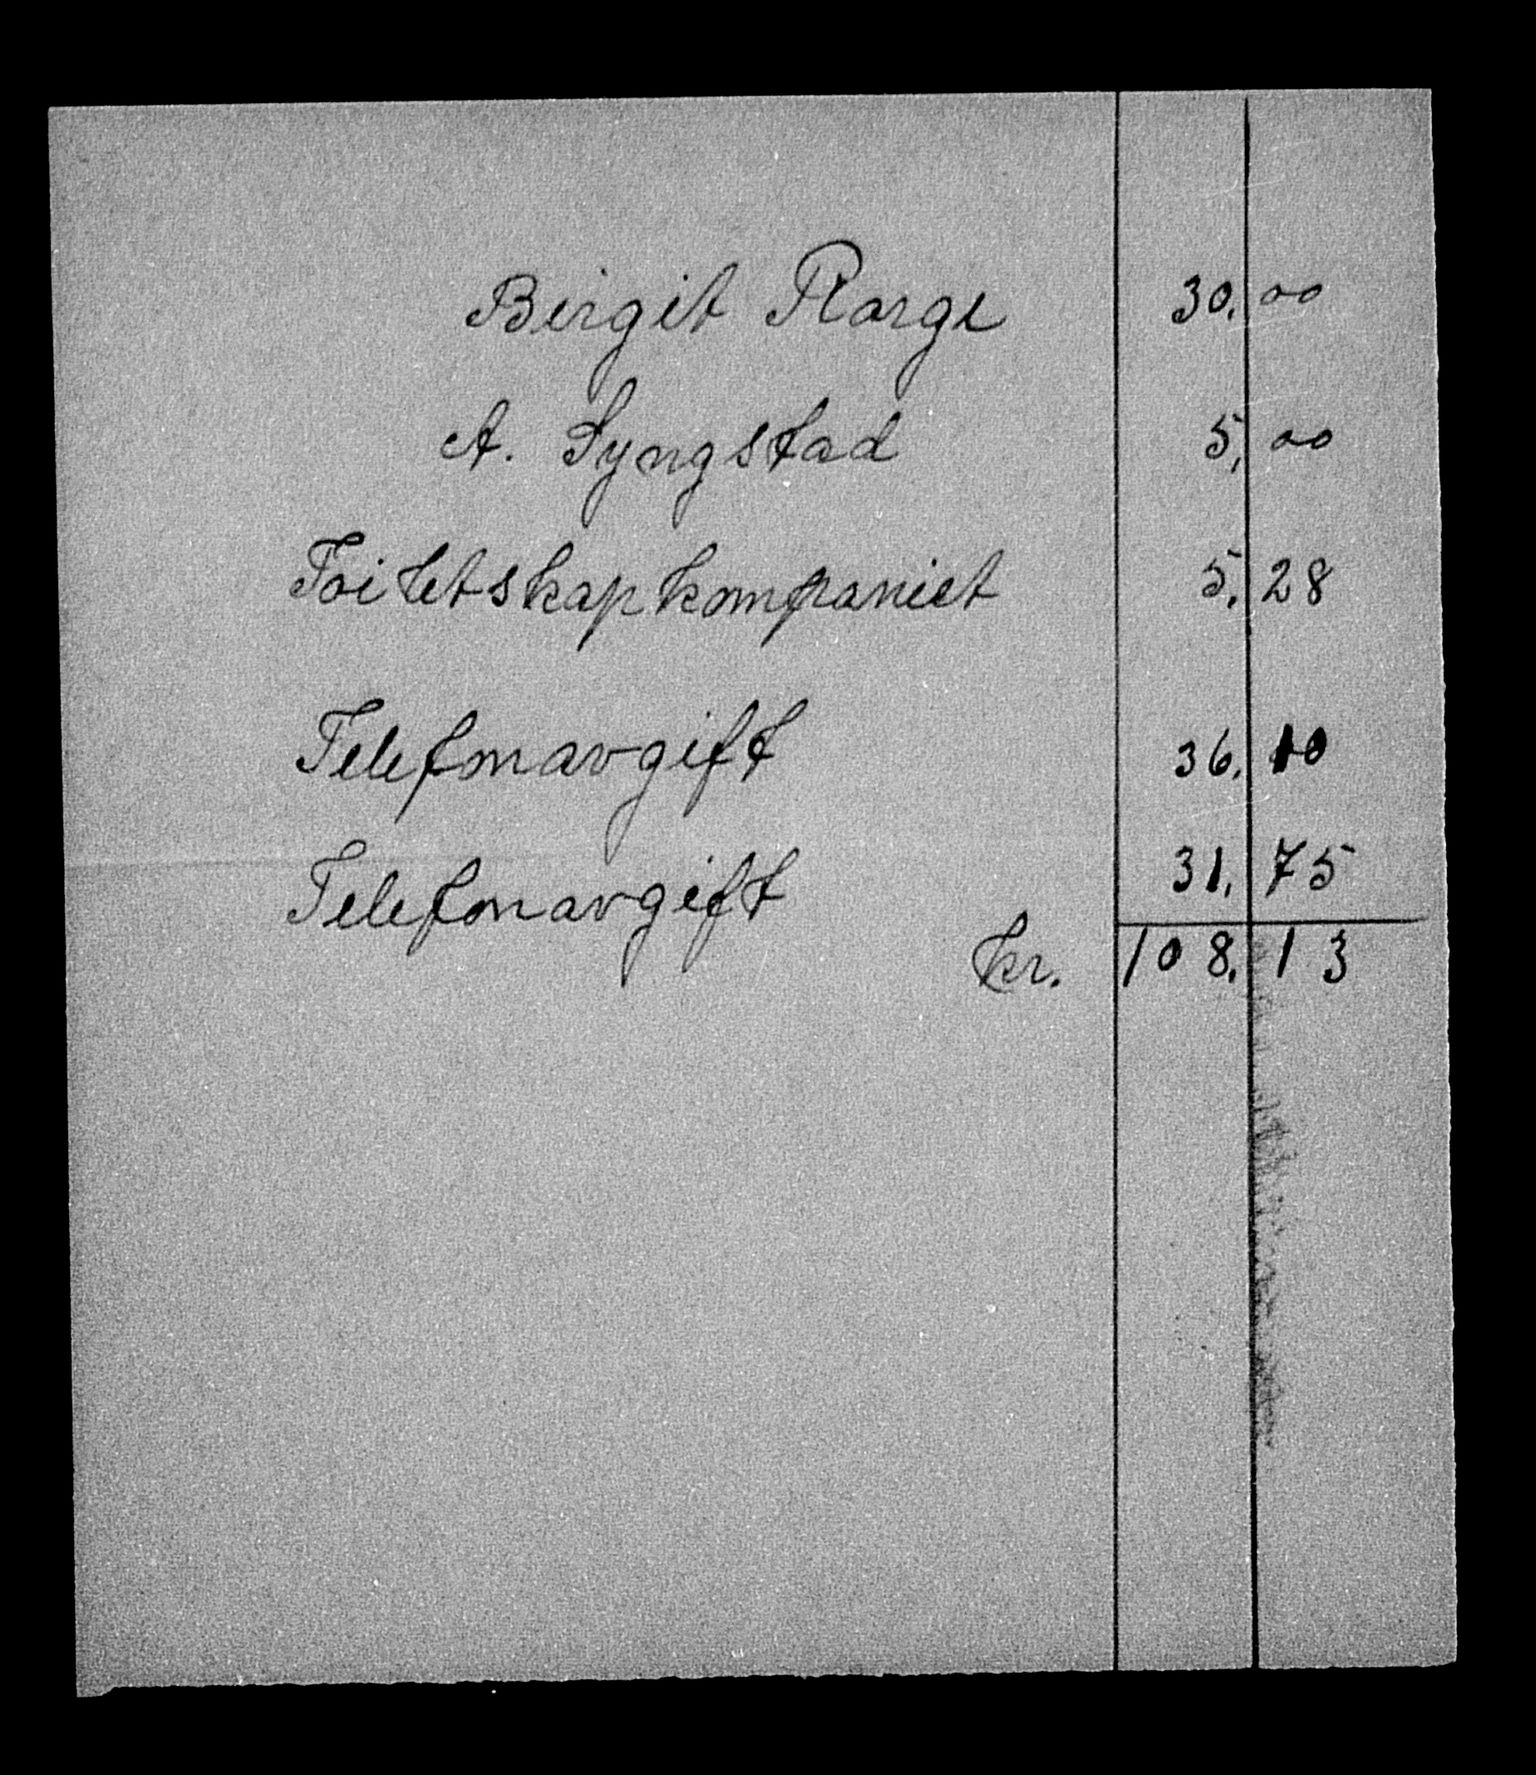 Birgit Rorge 30.00
A. Syngstad 5,00
Toiletskapkompaniet 5.28
Telefonavgift 36.10
Telefonavgift 31.75
kr. 108.13